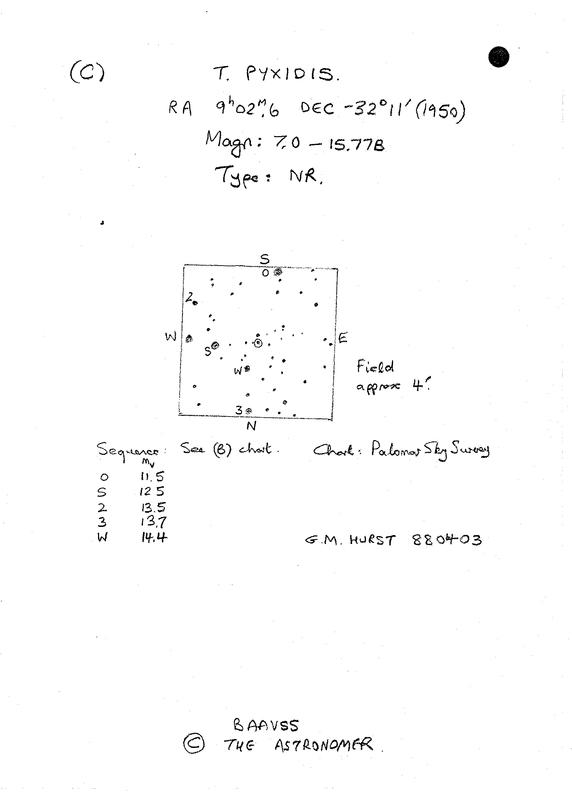 (C) T. PYXIDIS.
RA 9ʰ02ᵐ.6 DEC -32°11′ (1950)
Magn: 7.0 — 15.77B
Type: NR.
S
O
2
W E
S
W
Field
approx 4′.
3
N
Sequence: See (B) chart. Chart: Palomar Sky Survey
mv
O 11.5
S 12.5
2 13.5
3 13.7
W 14.4
G.M. HURST 880403
BAAVSS
© THE ASTRONOMER.